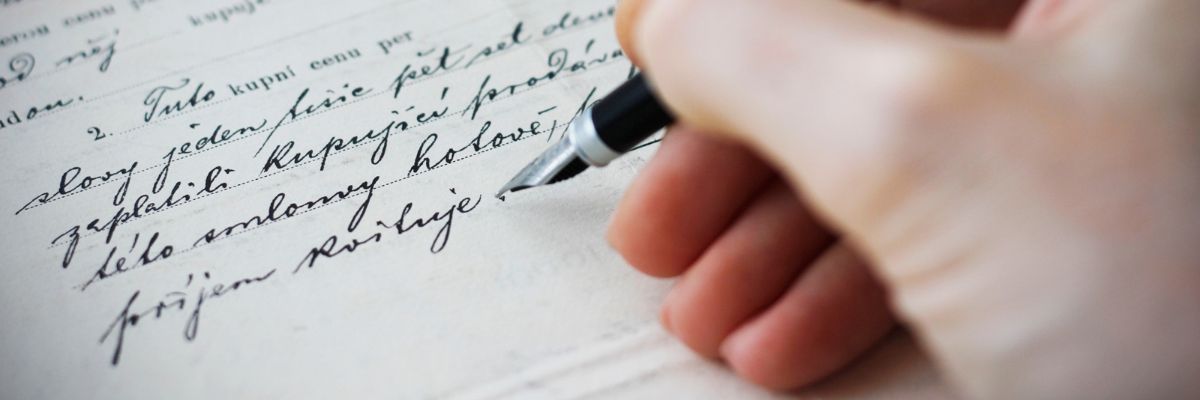 cenu
kupuje
od něj
2. Tuto kupní cenu per
slovy jeden tisíc pět set
zaplatili kupující
této smlouvy hotově,
příjem kvituje.